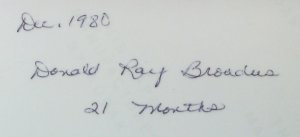 Dec. 1980
Donald Ray Broadus
21 Months